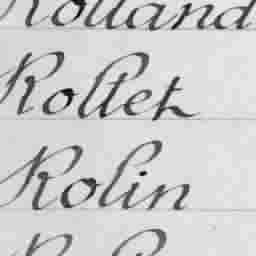 Rolland
Rollet
Rolin